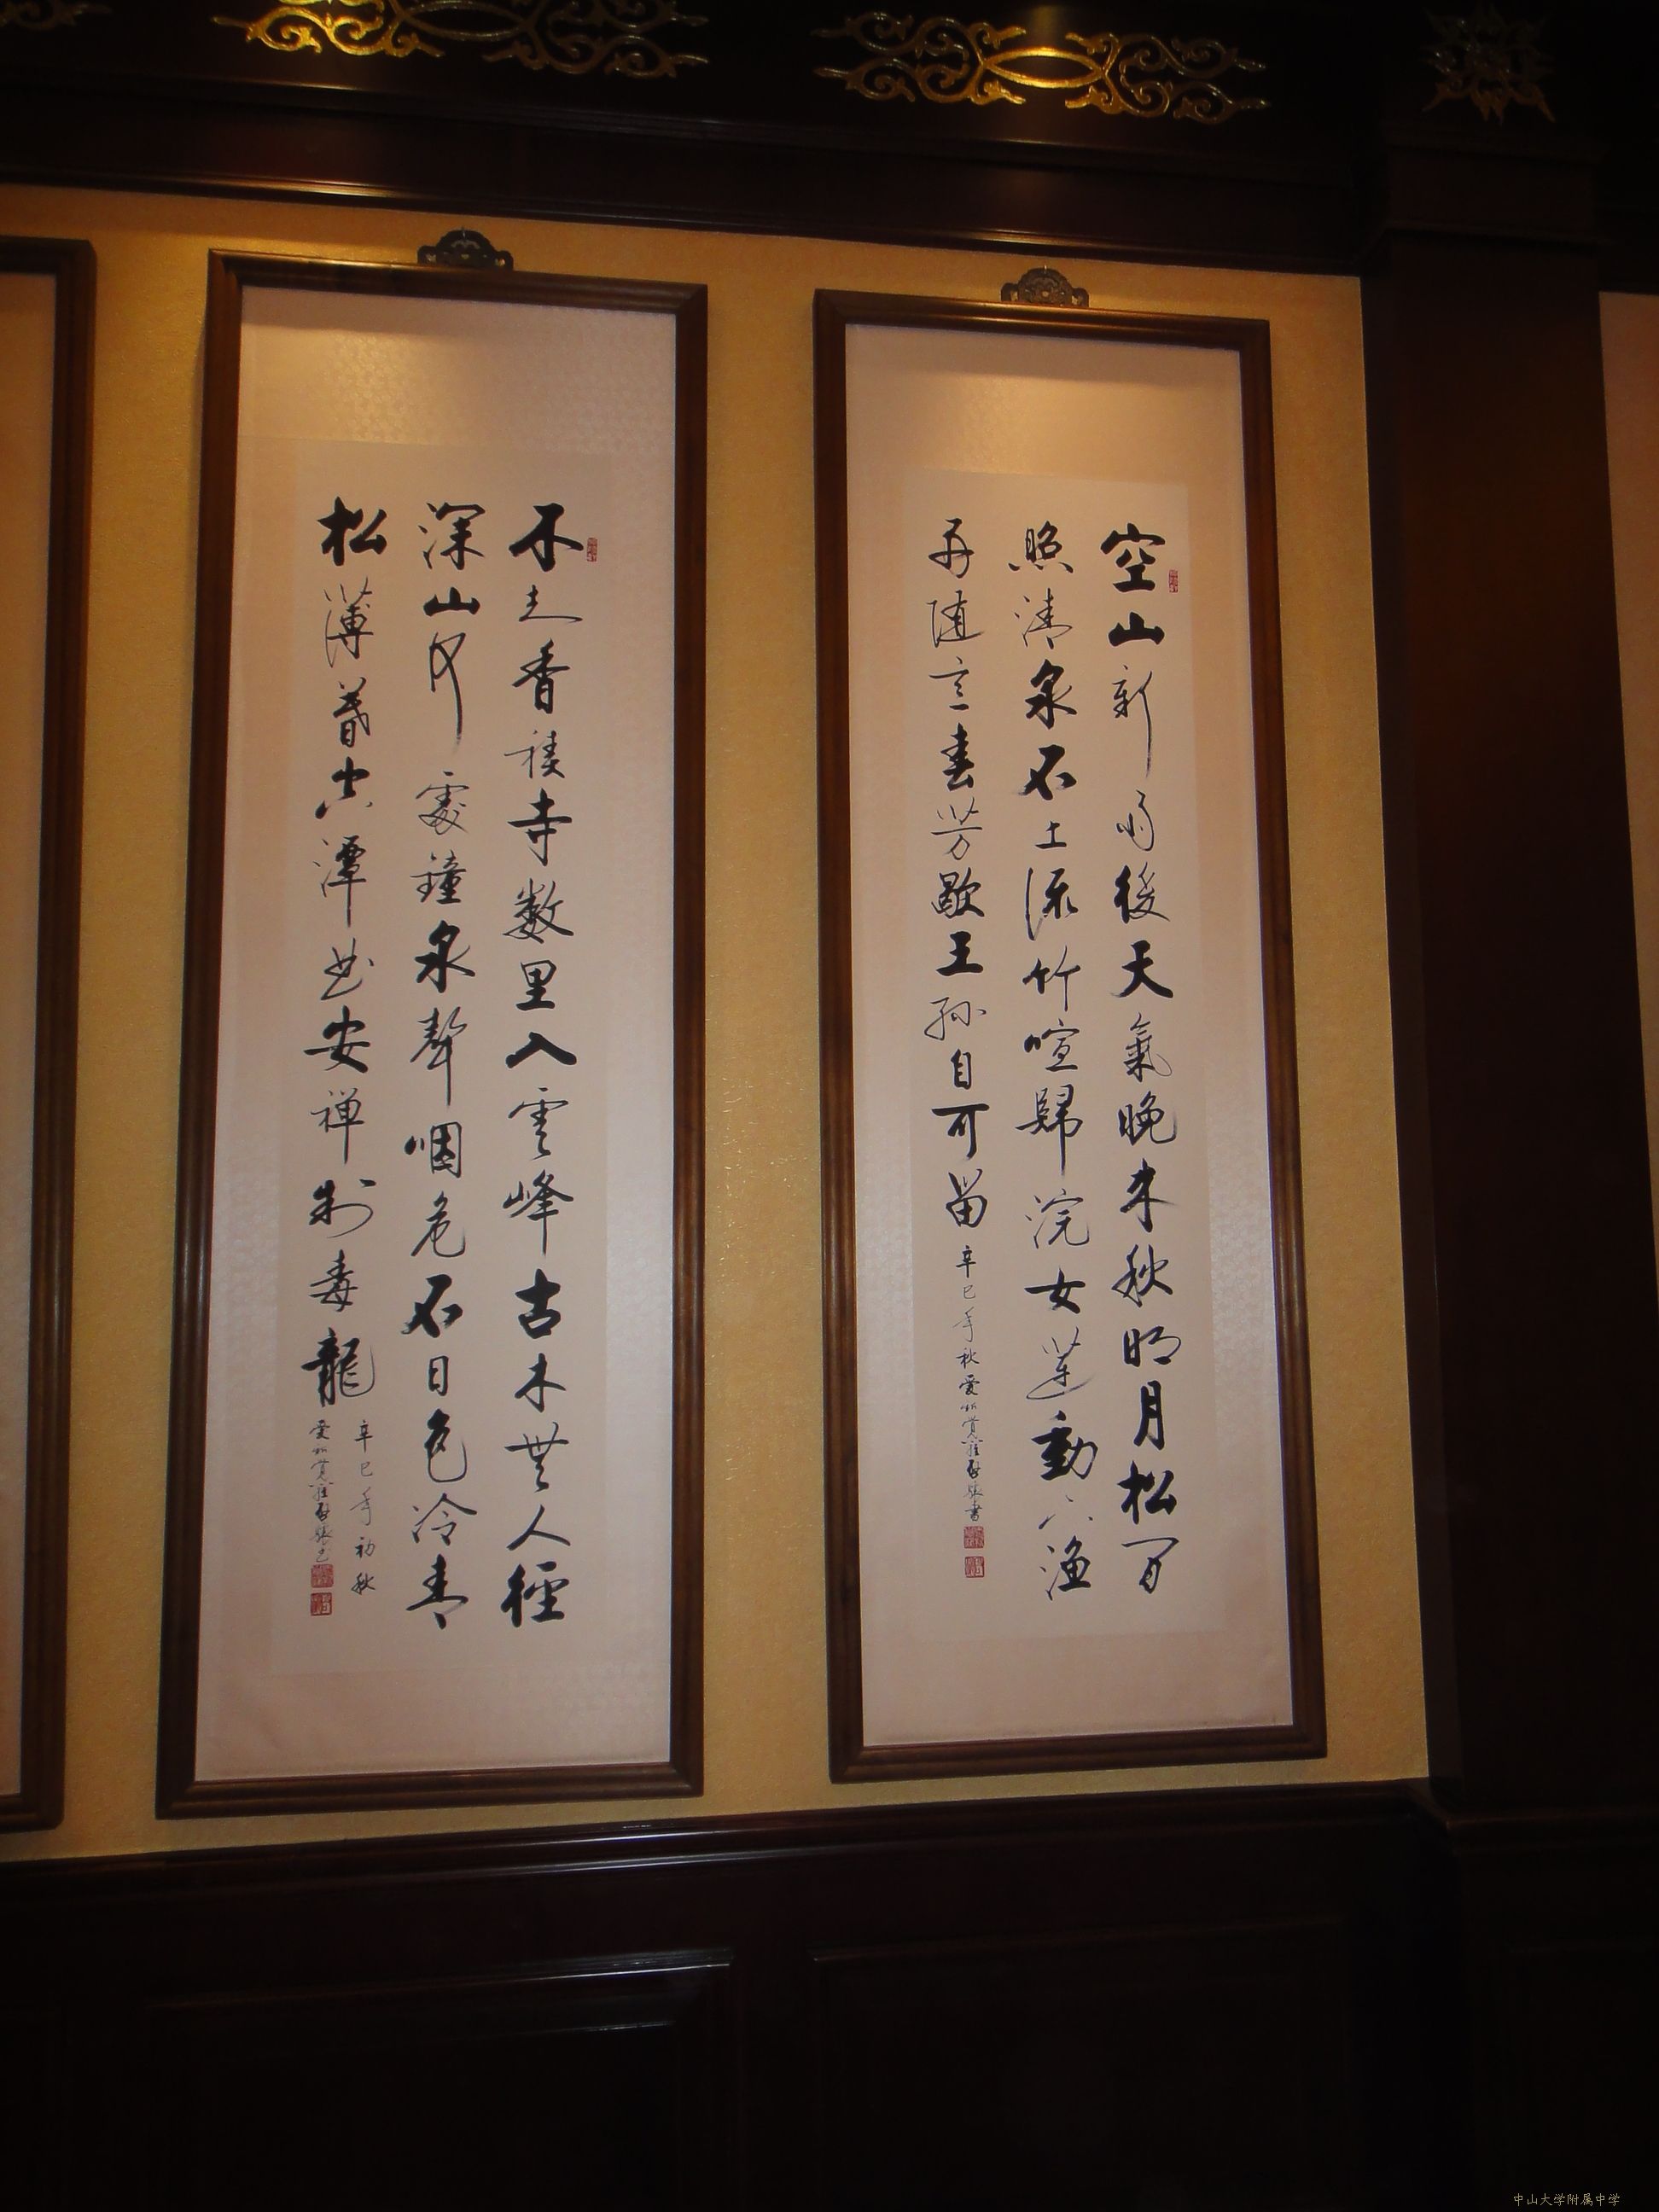 空山新雨後天氣晚来秋明月松間
照清泉石上流竹喧歸浣女蓮動下漁
舟随意春芳歇王孫自可留 辛巳年秋愛新覺羅啟驤書
不知香積寺数里入雲峰古木無人徑
深山何處鐘泉聲咽危石日色冷青
松薄暮空潭曲安禅制毒龍
辛巳年初秋
愛新覺羅啟驤書
中山大学附属中学